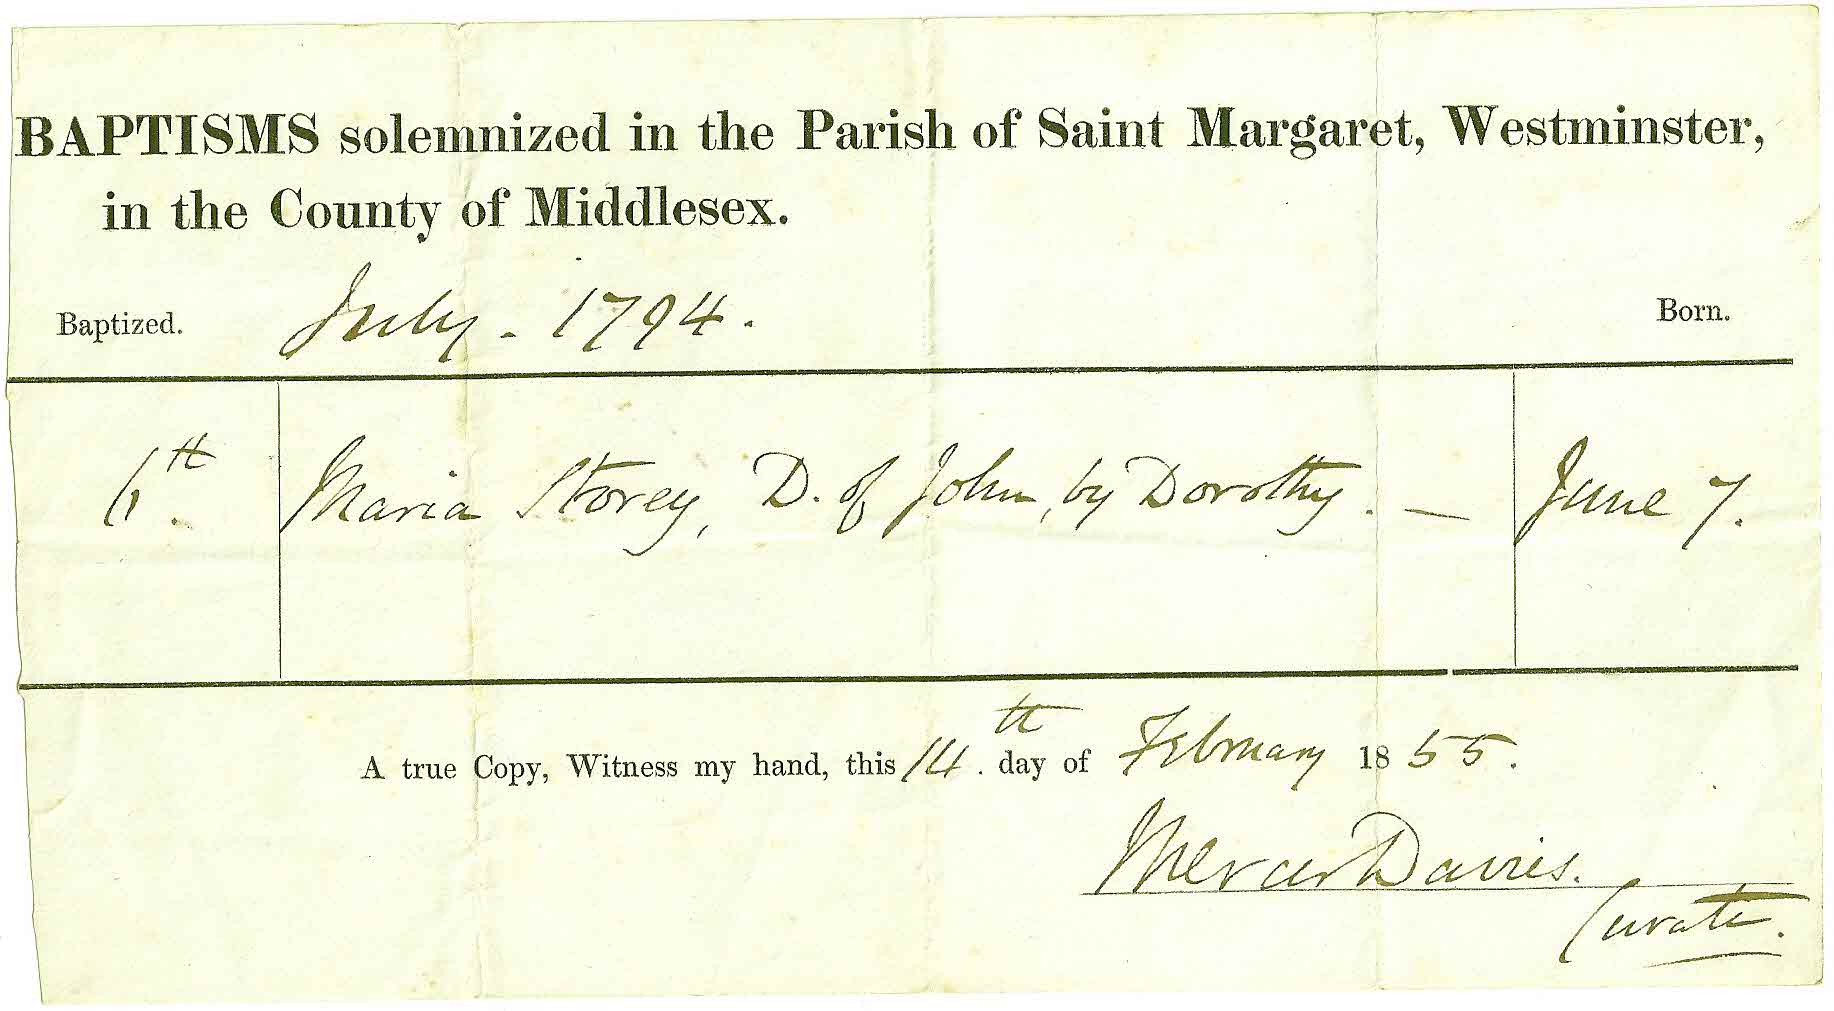 BAPTISMS solemnized in the Parish of Saint Margaret, Westminster,
in the County of Middlesex.
Baptized. July - 1794. Born.
6th. Maria Storey, D. of John, by Dorothy. — June 7.
A true Copy, Witness my hand, this 14th. day of February 1855.
Mercer Davies.
Curate.